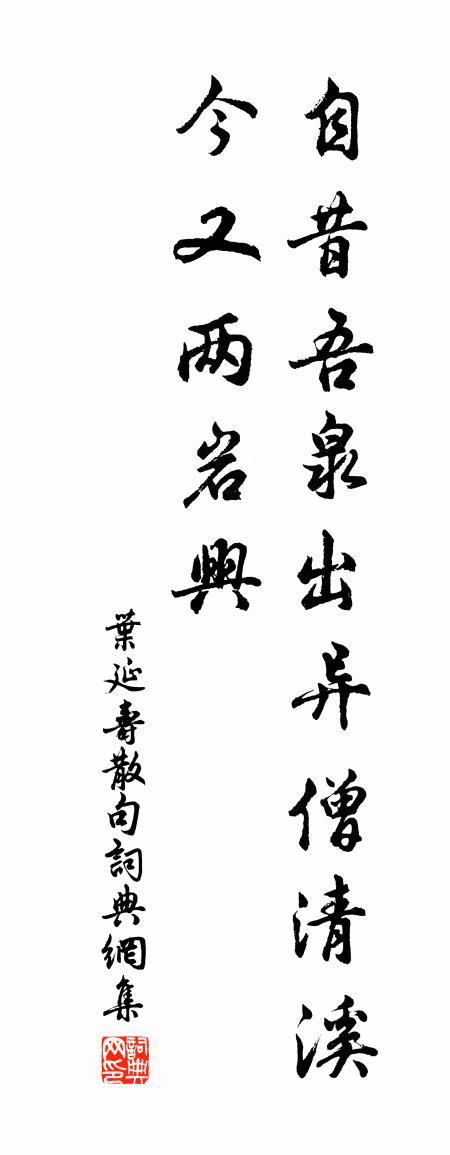 自昔吾泉出异僧清溪
今又两岩興
葉延壽散句詞典網集
詞典网印